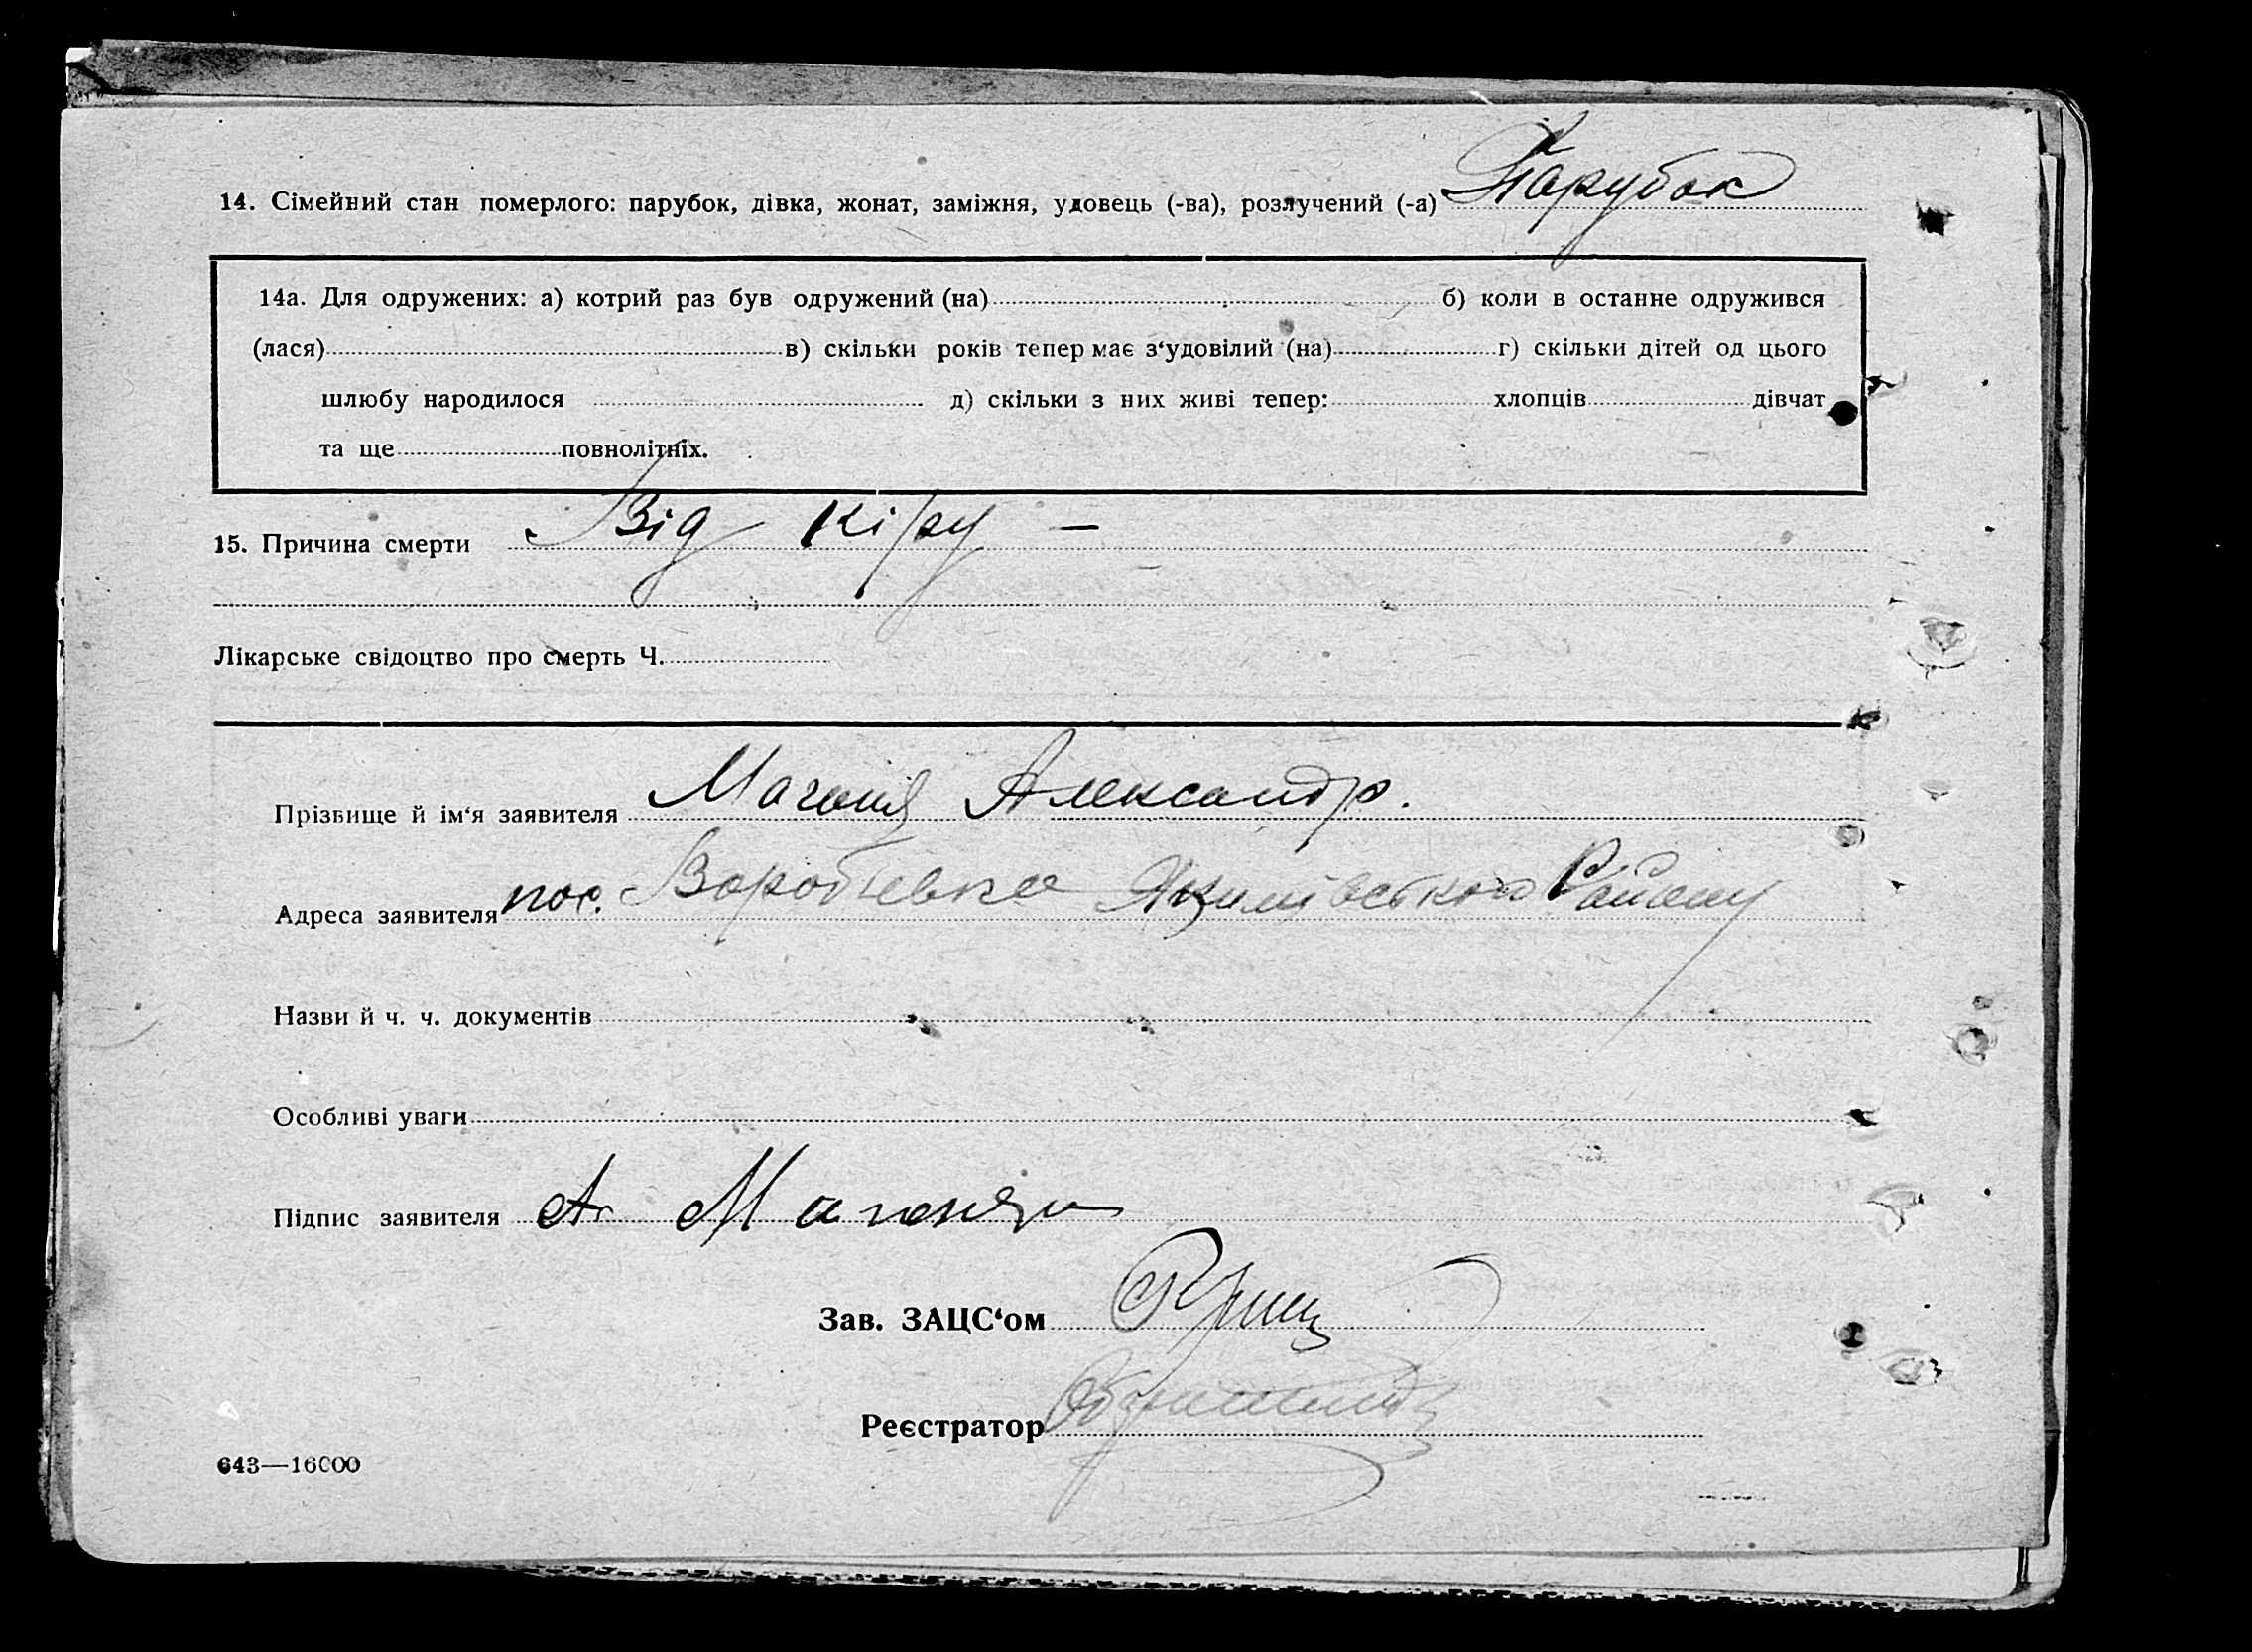 14. Сімейний стан померлого: парубок, дівка, жонат, заміжня, удовець (-ва), розлучений (-а) Парубок
14а. Для одружених: а) котрий раз був одружений (на) б) коли в останнє одружився
(лася) в) скільки років тепер має з‘удовілий (на) г) скільки дітей од цього
шлюбу народилося д) скільки з них живі тепер: хлопців дівчат
та ще повнолітніх.
15. Причина смерти Від кіру —
Лікарське свідоцтво про смерть Ч.
Прізвище й ім‘я заявителя Александр.
Адреса заявителя пос. Воробіевка Якимівського Району
Назви й ч. ч. документів
Особливі уваги
Підпис заявителя
Зав. ЗАЦС‘ом
Реєстратор
643—16000